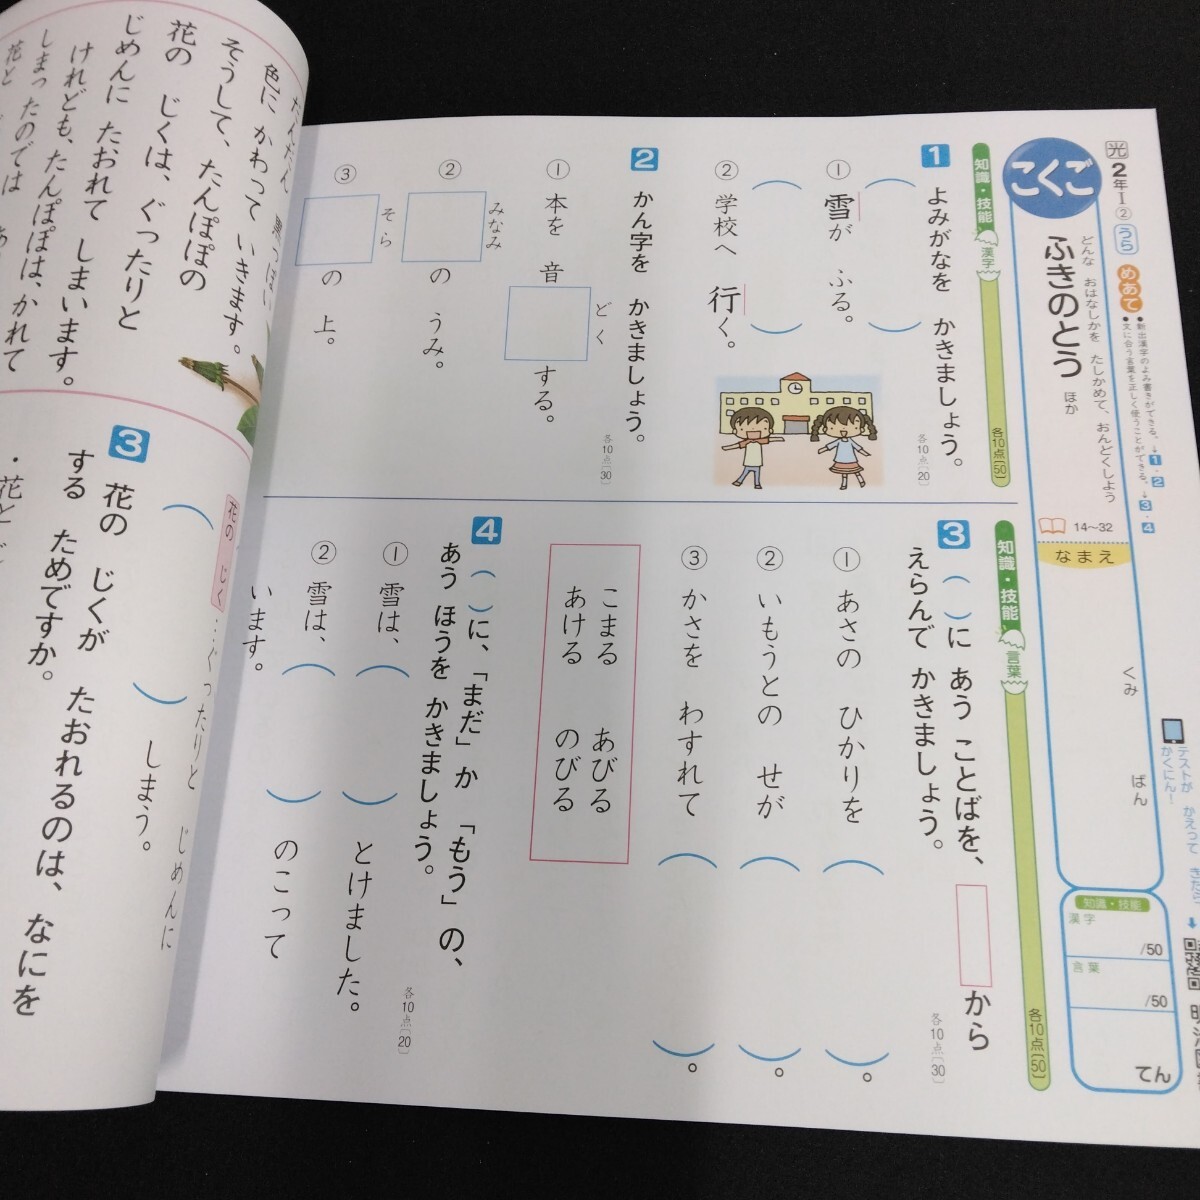 光2年Ⅰ② うら
めあて
●新出漢字のよみ書きができる。→1・2
●文に合う言葉を正しく使うことができる。→3・4
こくご
どんな おはなしかを たしかめて、おんどくしよう
ふきのとう ほか
14〜32
なまえ
くみ
ばん
テストが かえって きたら
かくにん!
知識・技能
漢字
/50
言葉
/50
てん
知識・技能 漢字 各10点〔50〕
1 よみがなを かきましょう。
各10点〔20〕
① 雪が ふる。
② 学校へ 行く。
2 かん字を かきましょう。
各10点〔30〕
① 本を 音 どく する。
② みなみ の うみ。
③ そら の 上。
知識・技能 言葉 各10点〔50〕
3 ( )に あう ことばを、 から
えらんで かきましょう。
各10点〔30〕
① あさの ひかりを ( )。
② いもうとの せが ( )。
③ かさを わすれて ( )。
こまる あびる
あける のびる
4 ( )に、「まだ」か 「もう」の、
あう ほうを かきましょう。
各10点〔20〕
① 雪は、( ) とけました。
② 雪は、( ) のこって
います。
色に かわって いきます。
そうして、たんぽぽの
花の じくは、ぐったりと
じめんに たおれて しまいます。
けれども、たんぽぽは、かれて
しまったのでは
花の じく…ぐったりと じめんに
( ) しまう。
3 花の じくが たおれるのは、なにを
する ためですか。